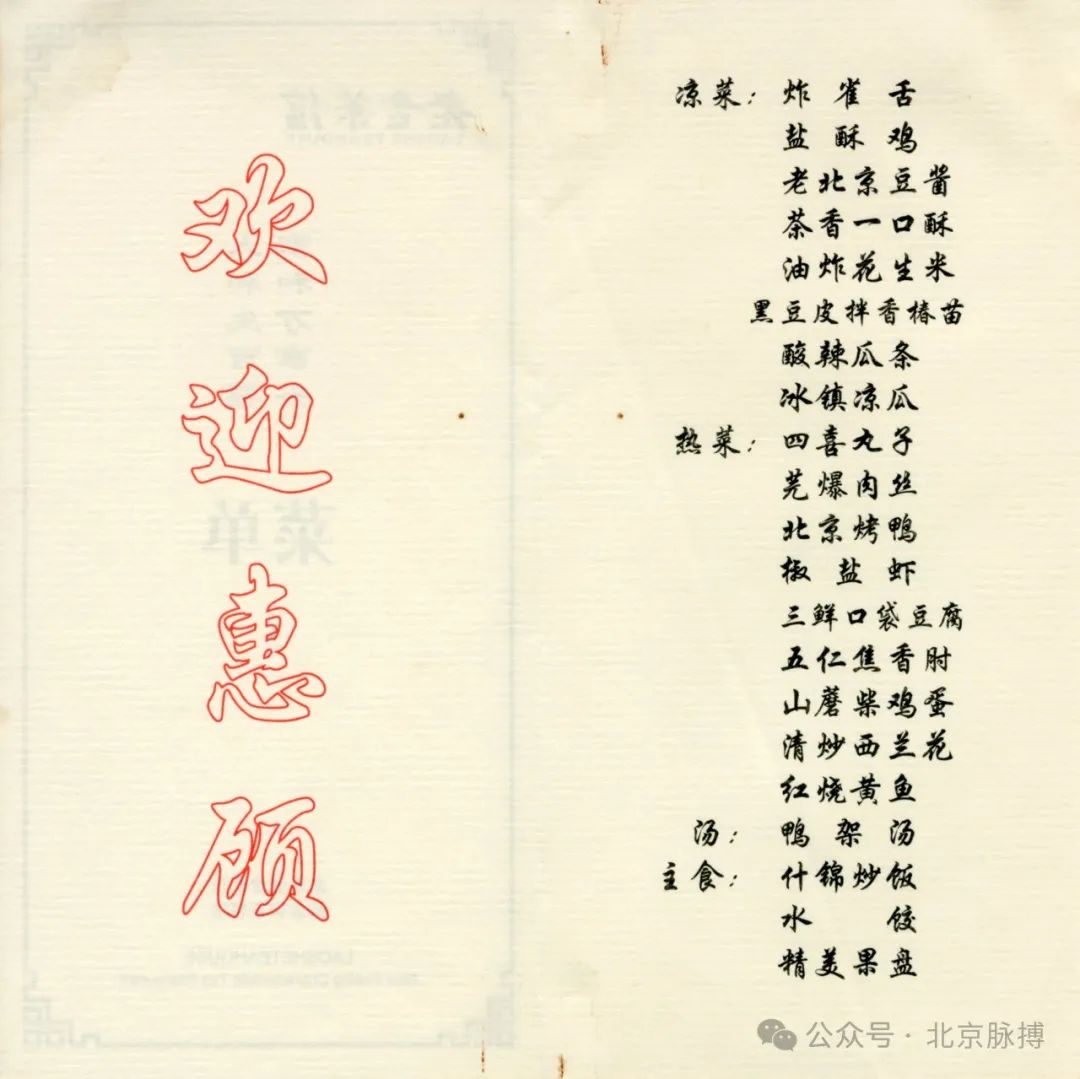 欢
迎
惠
顾
凉菜：炸雀舌
盐酥鸡
老北京豆酱
茶香一口酥
油炸花生米
黑豆皮拌香椿苗
酸辣瓜条
冰镇凉瓜
热菜：四喜丸子
芫爆肉丝
北京烤鸭
椒盐虾
三鲜口袋豆腐
五仁焦香肘
山蘑柴鸡蛋
清炒西兰花
红烧黄鱼
汤：鸭架汤
主食：什锦炒饭
水饺
精美果盘
菜单
公众号·北京脉搏